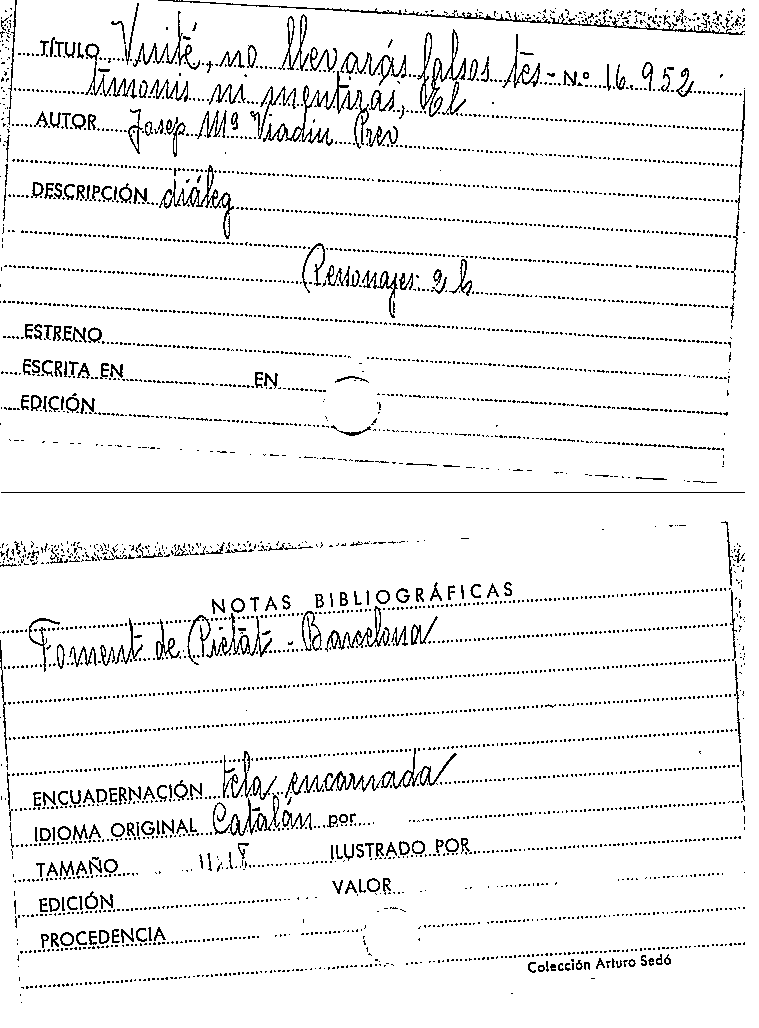 TÍTULO Vuité, no llevarás falsos tes- N.º 16.952
timonis ni mentiras, El
AUTOR Josep Mª Viadiu Prev
DESCRIPCIÓN diáleg
Personajes: 2 h
ESTRENO
ESCRITA EN EN
EDICIÓN
NOTAS BIBLIOGRÁFICAS
Foment de Pietat - Barcelona
ENCUADERNACIÓN tela encarnada
IDIOMA ORIGINAL Catalán por
TAMAÑO ILUSTRADO POR
EDICIÓN VALOR
PROCEDENCIA
Colección Arturo Sedó